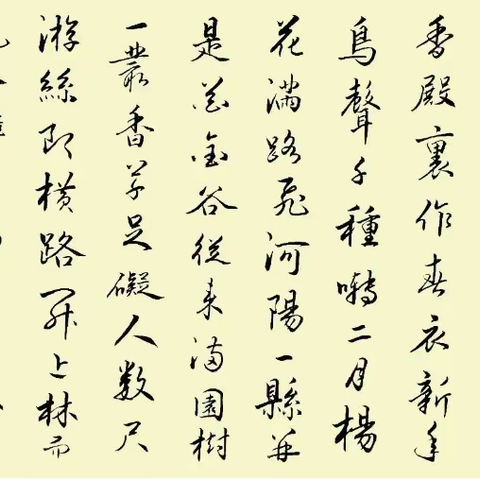 香殿裏作春衣新年
鳥聲千種囀二月楊
花滿路飛河陽一縣并
是花金谷從來滿園樹
一叢香草足礙人數尺
游絲即橫路開上林而